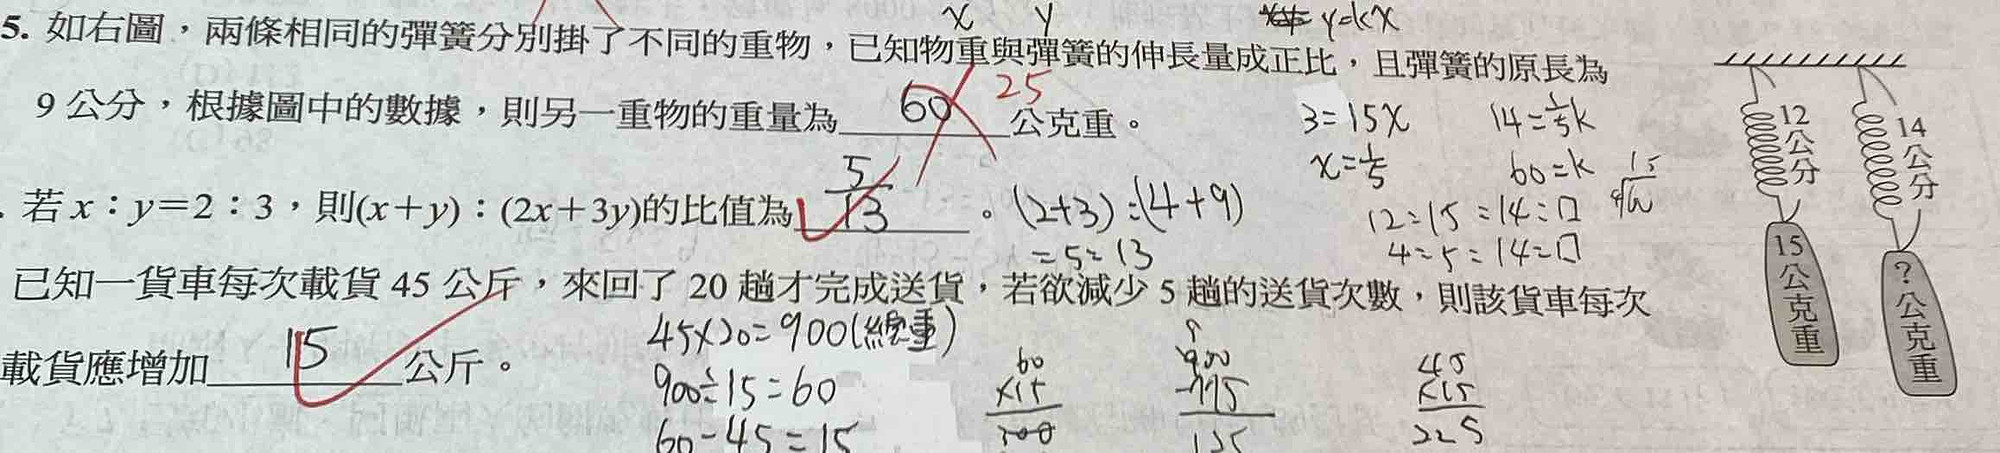 x y y=kx
5. 如右圖，兩條相同的彈簧分別掛了不同的重物，已知物重與彈簧的伸長量成正比，且彈簧的原長為
9 公分，根據圖中的數據，則另一重物的重量為 60 25 公克重。
3=15x 14=1/5k
x=1/5 60=k
12:15=14:□
4:5=14:□
12公分
14公分
15公克重
?公克重
若 x：y＝2：3，則(x＋y)：(2x＋3y)的比值為 5/13 。 (2+3):(4+9)
=5:13
已知一貨車每次載貨 45 公斤，來回了 20 趟才完成送貨，若欲減少 5 趟的送貨次數，則該貨車每次
載貨應增加 15 公斤。
45×20=900(總重)
900÷15=60
60-45=15
60
×15
300
900
125
45
×15
225